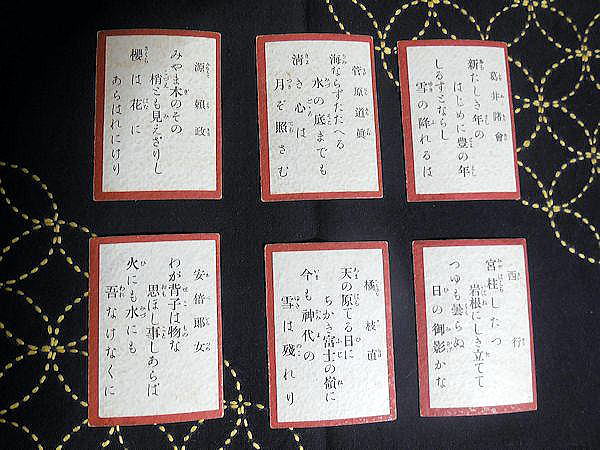 葛井諸會
新たしき年の
はじめに豊の年
しるすとならし
雪の降れるは
菅原道眞
海ならずたたへる
水の底までも
清き心は
月ぞ照さむ
源頼政
みやま木のその
梢とも見えざりし
櫻は花に
あらはれにけり
西行
宮柱したつ
岩根にしき立てて
つゆも曇らぬ
日の御影かな
橘枝直
天の原てる日に
ちかき富士の嶺に
今も神代の
雪は殘れり
安倍郎女
わが背子は物な
思ほし事しあらば
火にも水にも
吾なけなくに